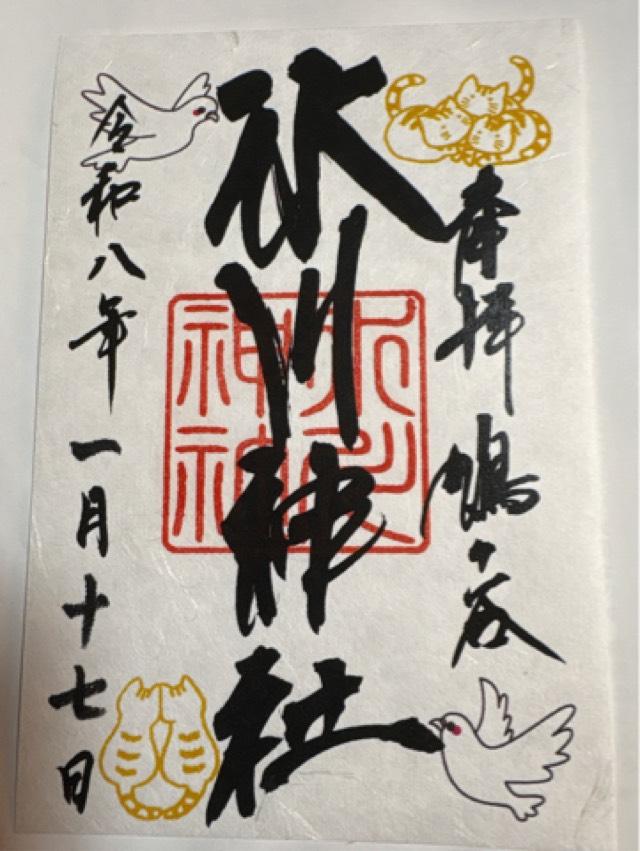 奉拝 鳩ヶ谷
氷川神社
令和八年一月十七日